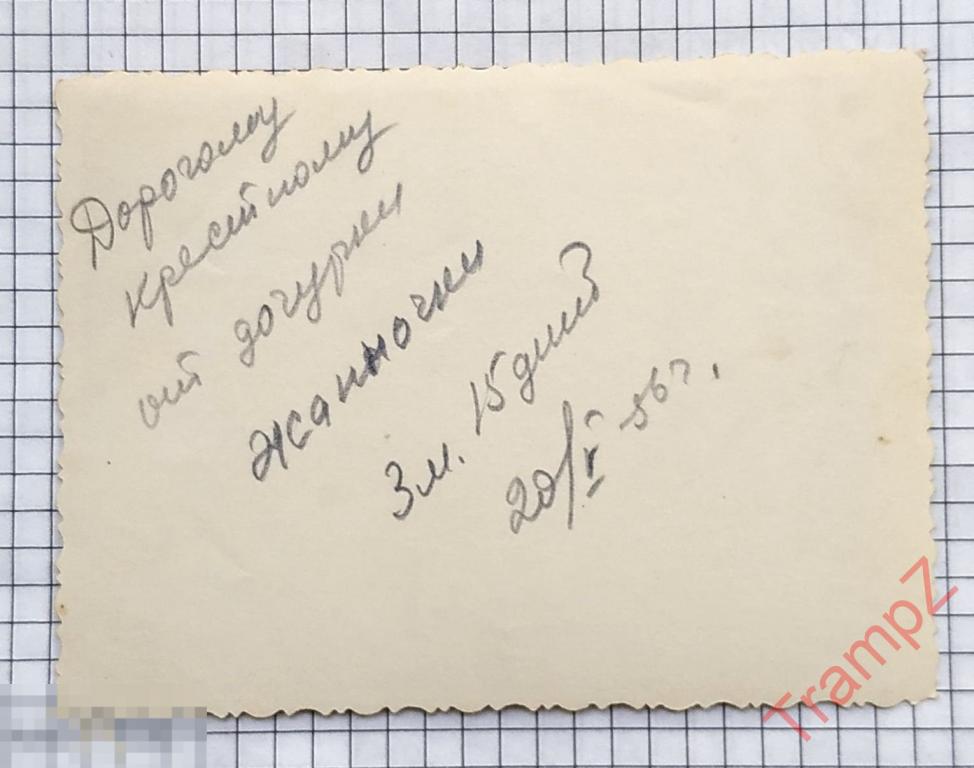 Дорогому
крестному
от дочурки
Жанночки
3 м. 15 дний
20/V 56 г.
TrampZ